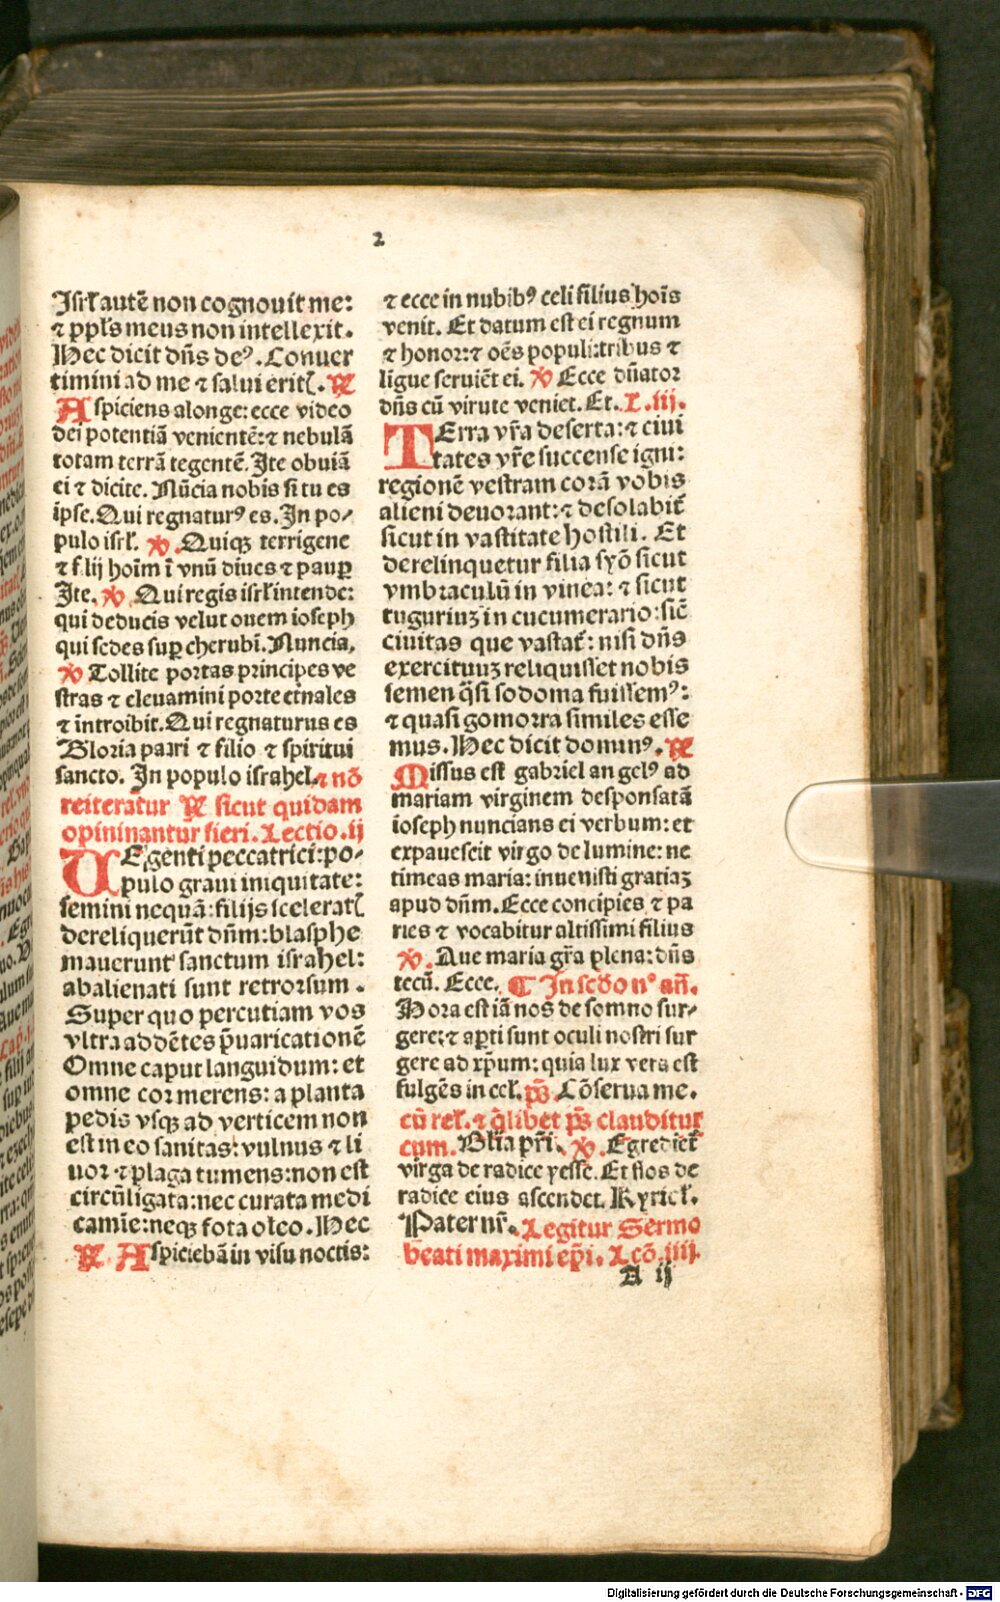 2
Isrl̄ autē non cognouit me:
⁊ ppl̄s meus non intellexit.
Hec dicit dn̄s deꝰ. Conuer
timini ad me ⁊ salui eritꝭ. ℟
Aspiciens alonge: ecce video
dei potentiā venientē: ⁊ nebulā
totam terrā tegentē. Ite obuiā
ei ⁊ dicite. Nūcia nobis si tu es
ip̄se. Qui regnaturꝰ es. In po⸗
pulo isrl̄. ℣. Quiqꝫ terrigene
⁊ f lij hoīm ī vnū diues ⁊ paupꝑ
Ite. ℣. Qui regis isrl̄ intende:
qui deducis velut ouem ioseph
qui sedes suꝑ cherubī. Nuncia.
℣ Tollite portas principes ve
stras ⁊ eleuamini porte et̄nales
⁊ introibit. Qui regnaturus es
Gloria patri ⁊ filio ⁊ spiritui
sancto. In populo israhel. ⁊ nō
reiteratur ℟ sicut quidam
opininantur fieri. Lectio. ij
VE genti peccatrici: po⸗
pulo graui iniquitate:
semini nequā: filijs sceleratꝭ
dereliquerūt dn̄m: blasphe
mauerunt sanctum israhel:
abalienati sunt retrorsum.
Super quo percutiam vos
vltra addētes p̄uaricationē
Omne caput languidum: et
omne cor merens: a planta
pedis vsqꝫ ad verticem non
est in eo sanitas: vulnus ⁊ li
uor ⁊ plaga tumens: non est
circūligata: nec curata medi
camīe: neqꝫ fota oleo. Hec
℟. Aspiciebā in visu noctis:
⁊ ecce in nubibꝰ celi filius hoīs
venit. Et datum est ei regnum
⁊ honor: ⁊ oēs populi: tribus ⁊
ligue seruiēt ei. ℣ Ecce dn̄ator
dn̄s cū virute veniet. Et. L. iij.
TErra vr̄a deserta: ⁊ ciui
tates vr̄e succense igni:
regionē vestram corā vobis
alieni deuorant: ⁊ desolabit̄
sicut in vastitate hostili. Et
derelinquetur filia syō sicut
vmbraculū in vinea: ⁊ sicut
tuguriuꝫ in cucumerario: sic̄
ciuitas que vastat̄: nisi dn̄s
exercituuꝫ reliquisset nobis
semen q̄si sodoma fuissemꝰ:
⁊ quasi gomorra similes esse
mus. Hec dicit dominꝰ. ℟
Missus est gabriel angelꝰ ad
mariam virginem desponsatā
ioseph nuncians ei verbum: et
expauescit virgo de lumine: ne
timeas maria: inuenisti gratiaꝫ
apud dn̄m. Ecce concipies ⁊ pa
ries ⁊ vocabitur altissimi filius
℣. Aue maria gr̄a plena: dn̄s
tecū. Ecce. ¶ In scd̄o nᵒ an̄.
Hora est iā nos de somno sur⸗
gere: ⁊ aꝑti sunt oculi nostri sur
gere ad xp̄um: quia lux vera est
fulgēs in cel̄. ps̄. Cōserua me.
cū rel̄. ⁊ q̄libet ps̄ clauditur
cum. Gl̄ia pr̄i. ℣. Egrediet̄
virga de radice yesse. Et flos de
radice eius ascendet. Kyriel̄.
Pater nr̄. Legitur Sermo
beati maximi ep̄i. Lcō. iiij.
A ij
Digitalisierung gefördert durch die Deutsche Forschungsgemeinschaft - DFG